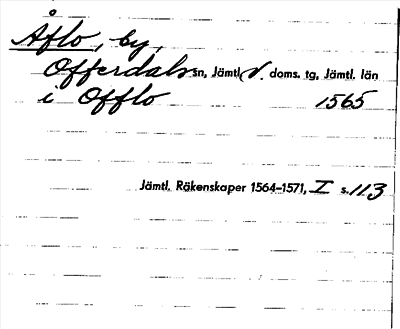 Åflo, by,
Offerdals sn, Jämtl. V. doms. tg, Jämtl. län
i Offlo 1565
Jämtl. Räkenskaper 1564-1571, I s. 113